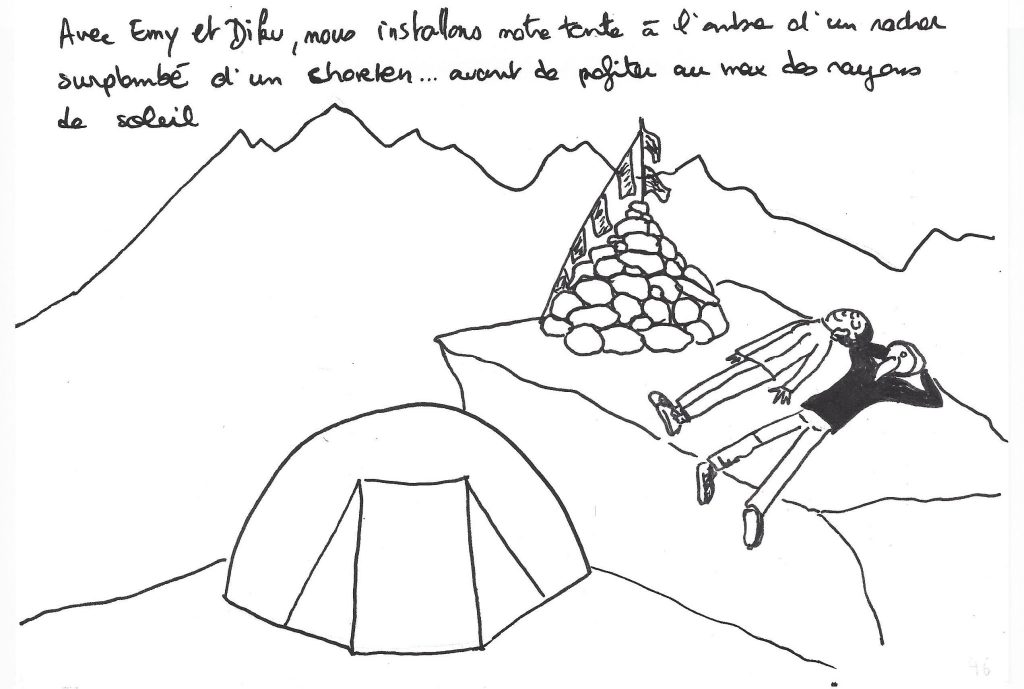 Avec Emy et Diku, nous installons notre tente à l'ombre d'un rocher
surplombé d'un chorten... avant de profiter au max des rayons
de soleil
46